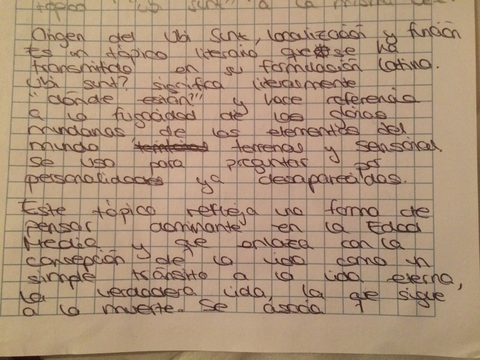 tópico "Ubi sunt" a la misma
Origen del Ubi Sunt, localización y función
Es un tópico literario que se ha
transmitido en su formulación latina.
Ubi sunt? significa literalmente
"dónde están?" y hace referencia
a la fugacidad de las glorias
mundanas de los elementos del
mundo terrenas y sensorial.
Se usa para preguntar por
personalidades ya desaparecidas.
Este tópico refleja una forma de
pensar dominante en la Edad
Media y que enlaza con la
concepción de la vida como un
simple tránsito a la vida eterna,
la verdadera vida, la que sigue
a la muerte. Se asocia